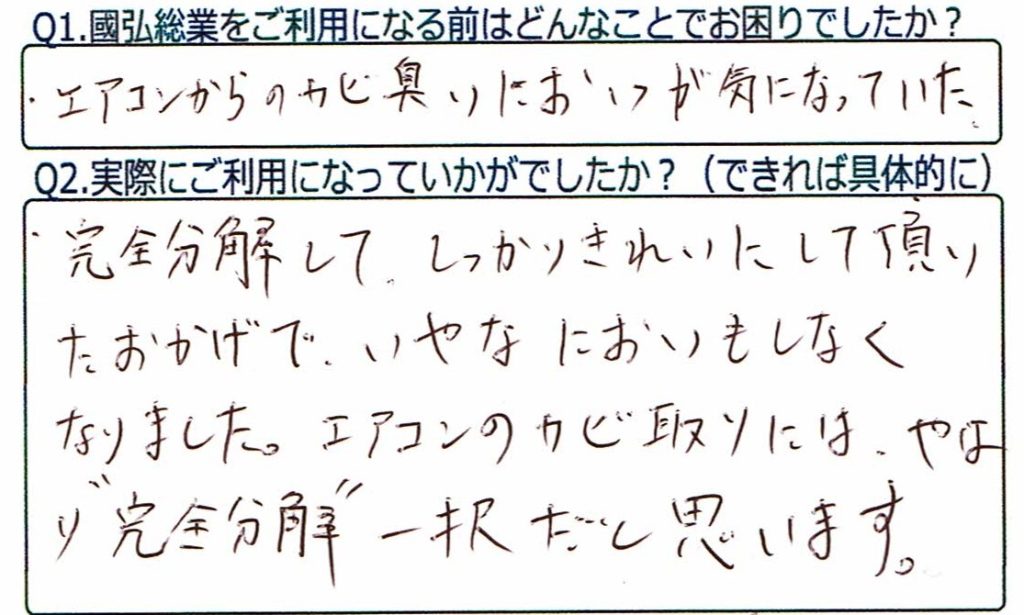 Q1.國弘総業をご利用になる前はどんなことでお困りでしたか？
・エアコンからのカビ臭いにおいが気になっていた、
Q2.実際にご利用になっていかがでしたか？（できれば具体的に）
・完全分解して、しっかりきれいにして頂い
たおかげで、いやなにおいもしなく
なりました。エアコンのカビ取りには、やは
り"完全分解"一択だと思います。